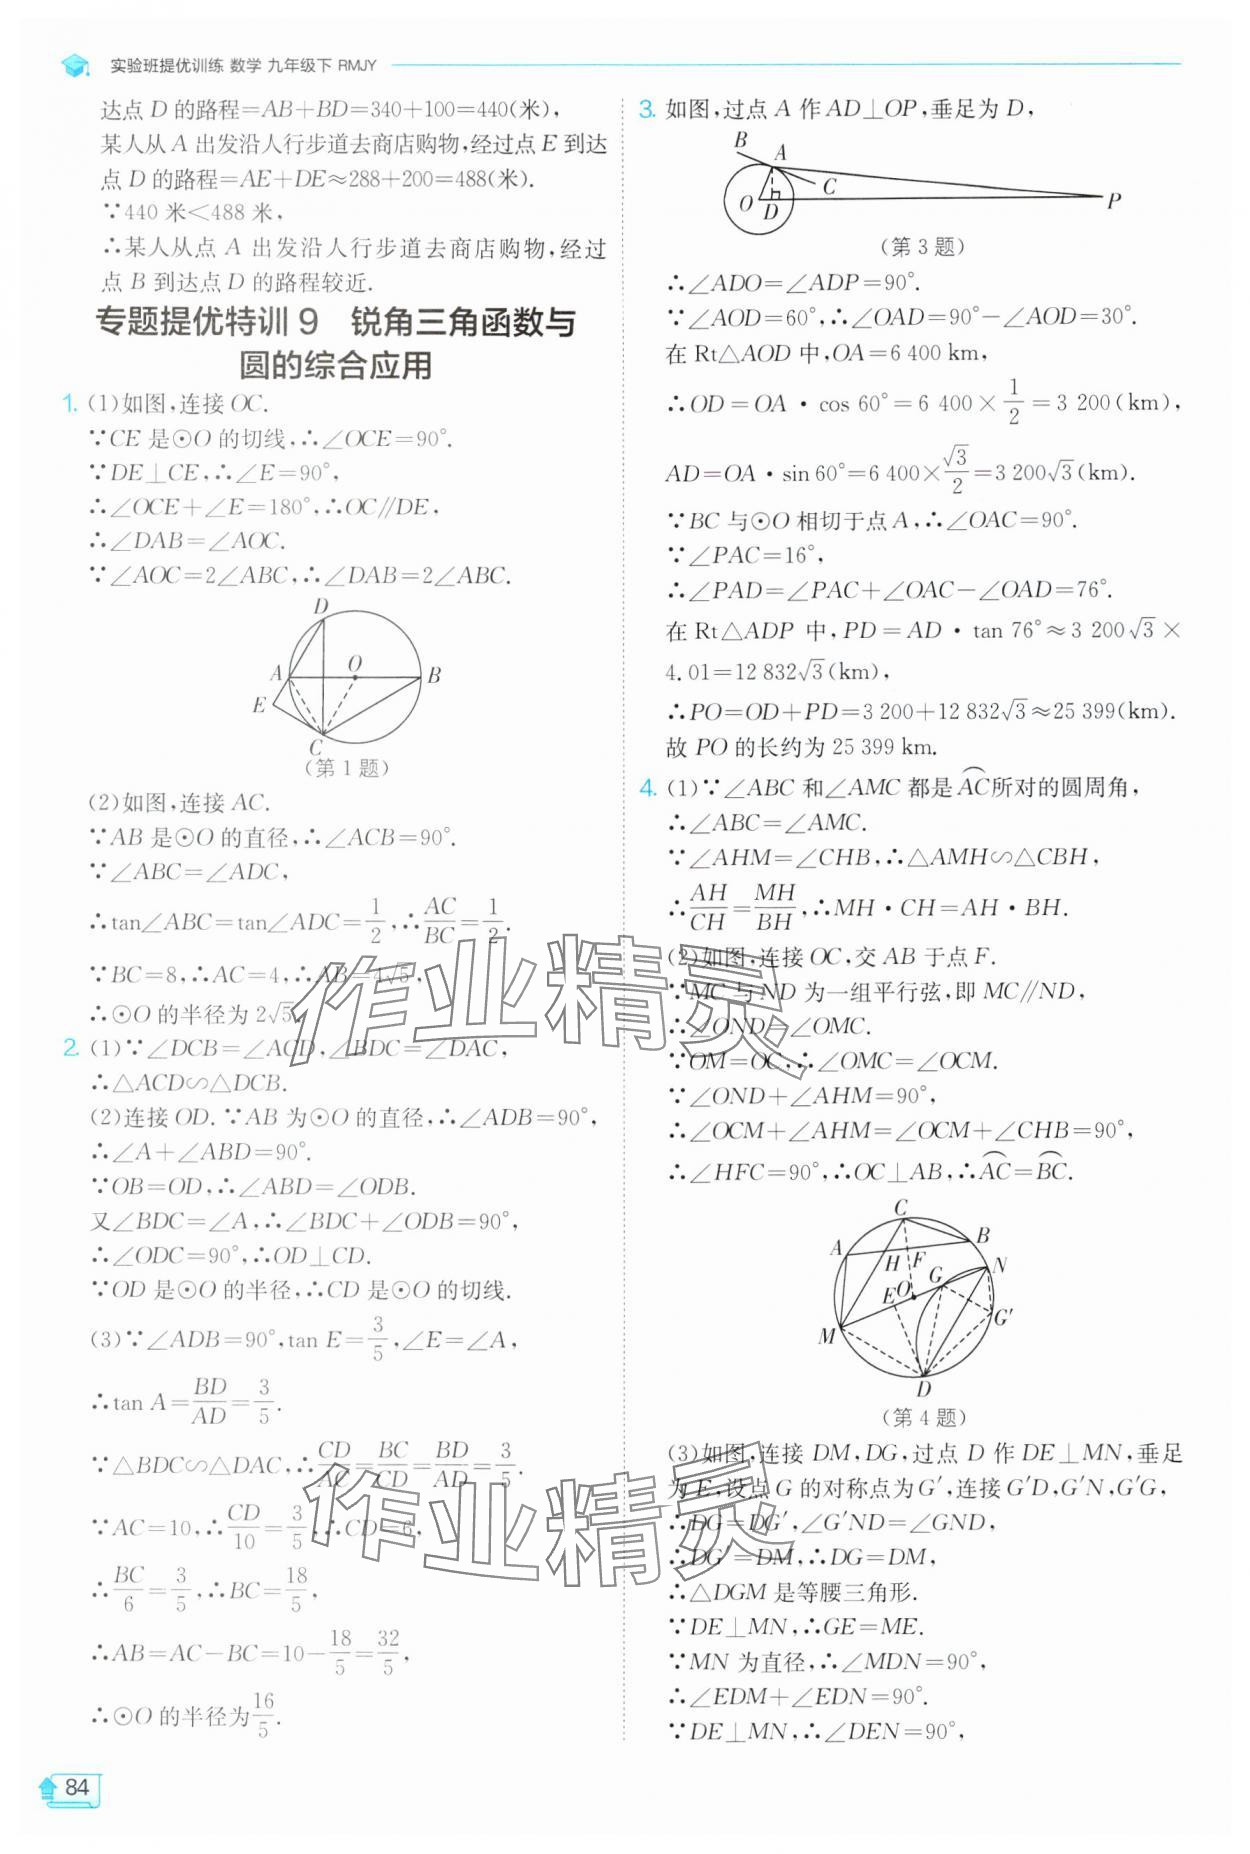 实验班提优训练 数学 九年级下 RMJY
达点 D 的路程=AB+BD=340+100=440(米),
某人从 A 出发沿人行步道去商店购物,经过点 E 到达
点 D 的路程=AE+DE≈288+200=488(米).
∵440 米<488 米,
∴某人从点 A 出发沿人行步道去商店购物,经过
点 B 到达点 D 的路程较近.
专题提优特训 9 锐角三角函数与
圆的综合应用
1. (1)如图,连接 OC.
∵CE 是⊙O 的切线,∴∠OCE=90°.
∵DE⊥CE,∴∠E=90°,
∴∠OCE+∠E=180°,∴OC∥DE,
∴∠DAB=∠AOC.
∵∠AOC=2∠ABC,∴∠DAB=2∠ABC.
D
A O B
E
C
(第 1 题)
(2)如图,连接 AC.
∵AB 是⊙O 的直径,∴∠ACB=90°.
∵∠ABC=∠ADC,
∴tan∠ABC=tan∠ADC=1/2,∴AC/BC=1/2.
∵BC=8,∴AC=4,∴AB=4√5,
∴⊙O 的半径为 2√5.
2. (1)∵∠DCB=∠ACD,∠BDC=∠DAC,
∴△ACD∽△DCB.
(2)连接 OD.∵AB 为⊙O 的直径,∴∠ADB=90°,
∴∠A+∠ABD=90°.
∵OB=OD,∴∠ABD=∠ODB.
又∠BDC=∠A,∴∠BDC+∠ODB=90°,
∴∠ODC=90°,∴OD⊥CD.
∵OD 是⊙O 的半径,∴CD 是⊙O 的切线.
(3)∵∠ADB=90°,tan E=3/5,∠E=∠A,
∴tan A=BD/AD=3/5.
∵△BDC∽△DAC,∴CD/AC=BC/CD=BD/AD=3/5.
∵AC=10,∴CD/10=3/5,∴CD=6,
∴BC/6=3/5,∴BC=18/5,
∴AB=AC−BC=10−18/5=32/5,
∴⊙O 的半径为16/5.
84
3. 如图,过点 A 作 AD⊥OP,垂足为 D,
B A
C
O D P
(第 3 题)
∴∠ADO=∠ADP=90°.
∵∠AOD=60°,∴∠OAD=90°−∠AOD=30°.
在 Rt△AOD 中,OA=6 400 km,
∴OD=OA·cos 60°=6 400×1/2=3 200(km),
AD=OA·sin 60°=6 400×√3/2=3 200√3(km).
∵BC 与⊙O 相切于点 A,∴∠OAC=90°.
∵∠PAC=16°,
∴∠PAD=∠PAC+∠OAC−∠OAD=76°.
在 Rt△ADP 中,PD=AD·tan 76°≈3 200√3×
4.01=12 832√3(km),
∴PO=OD+PD=3 200+12 832√3≈25 399(km).
故 PO 的长约为 25 399 km.
4. (1)∵∠ABC 和∠AMC 都是AC⌒所对的圆周角,
∴∠ABC=∠AMC.
∵∠AHM=∠CHB,∴△AMH∽△CBH,
∴AH/CH=MH/BH,∴MH·CH=AH·BH.
(2)如图,连接 OC,交 AB 于点 F.
∵MC 与 ND 为一组平行弦,即 MC∥ND,
∴∠OND=∠OMC.
∵OM=OC,∴∠OMC=∠OCM.
∵∠OND+∠AHM=90°,
∴∠OCM+∠AHM=∠OCM+∠CHB=90°,
∴∠HFC=90°,∴OC⊥AB,∴AC⌒=BC⌒.
C
A B
H F
G N
E O
G′
M
D
(第 4 题)
(3)如图,连接 DM,DG,过点 D 作 DE⊥MN,垂足
为 E,设点 G 的对称点为 G′,连接 G′D,G′N,G′G,
∴DG=DG′,∠G′ND=∠GND,
∴DG′=DM,∴DG=DM,
∴△DGM 是等腰三角形.
∵DE⊥MN,∴GE=ME.
∵MN 为直径,∴∠MDN=90°,
∴∠EDM+∠EDN=90°.
∵DE⊥MN,∴∠DEN=90°,
作业精灵
作业精灵